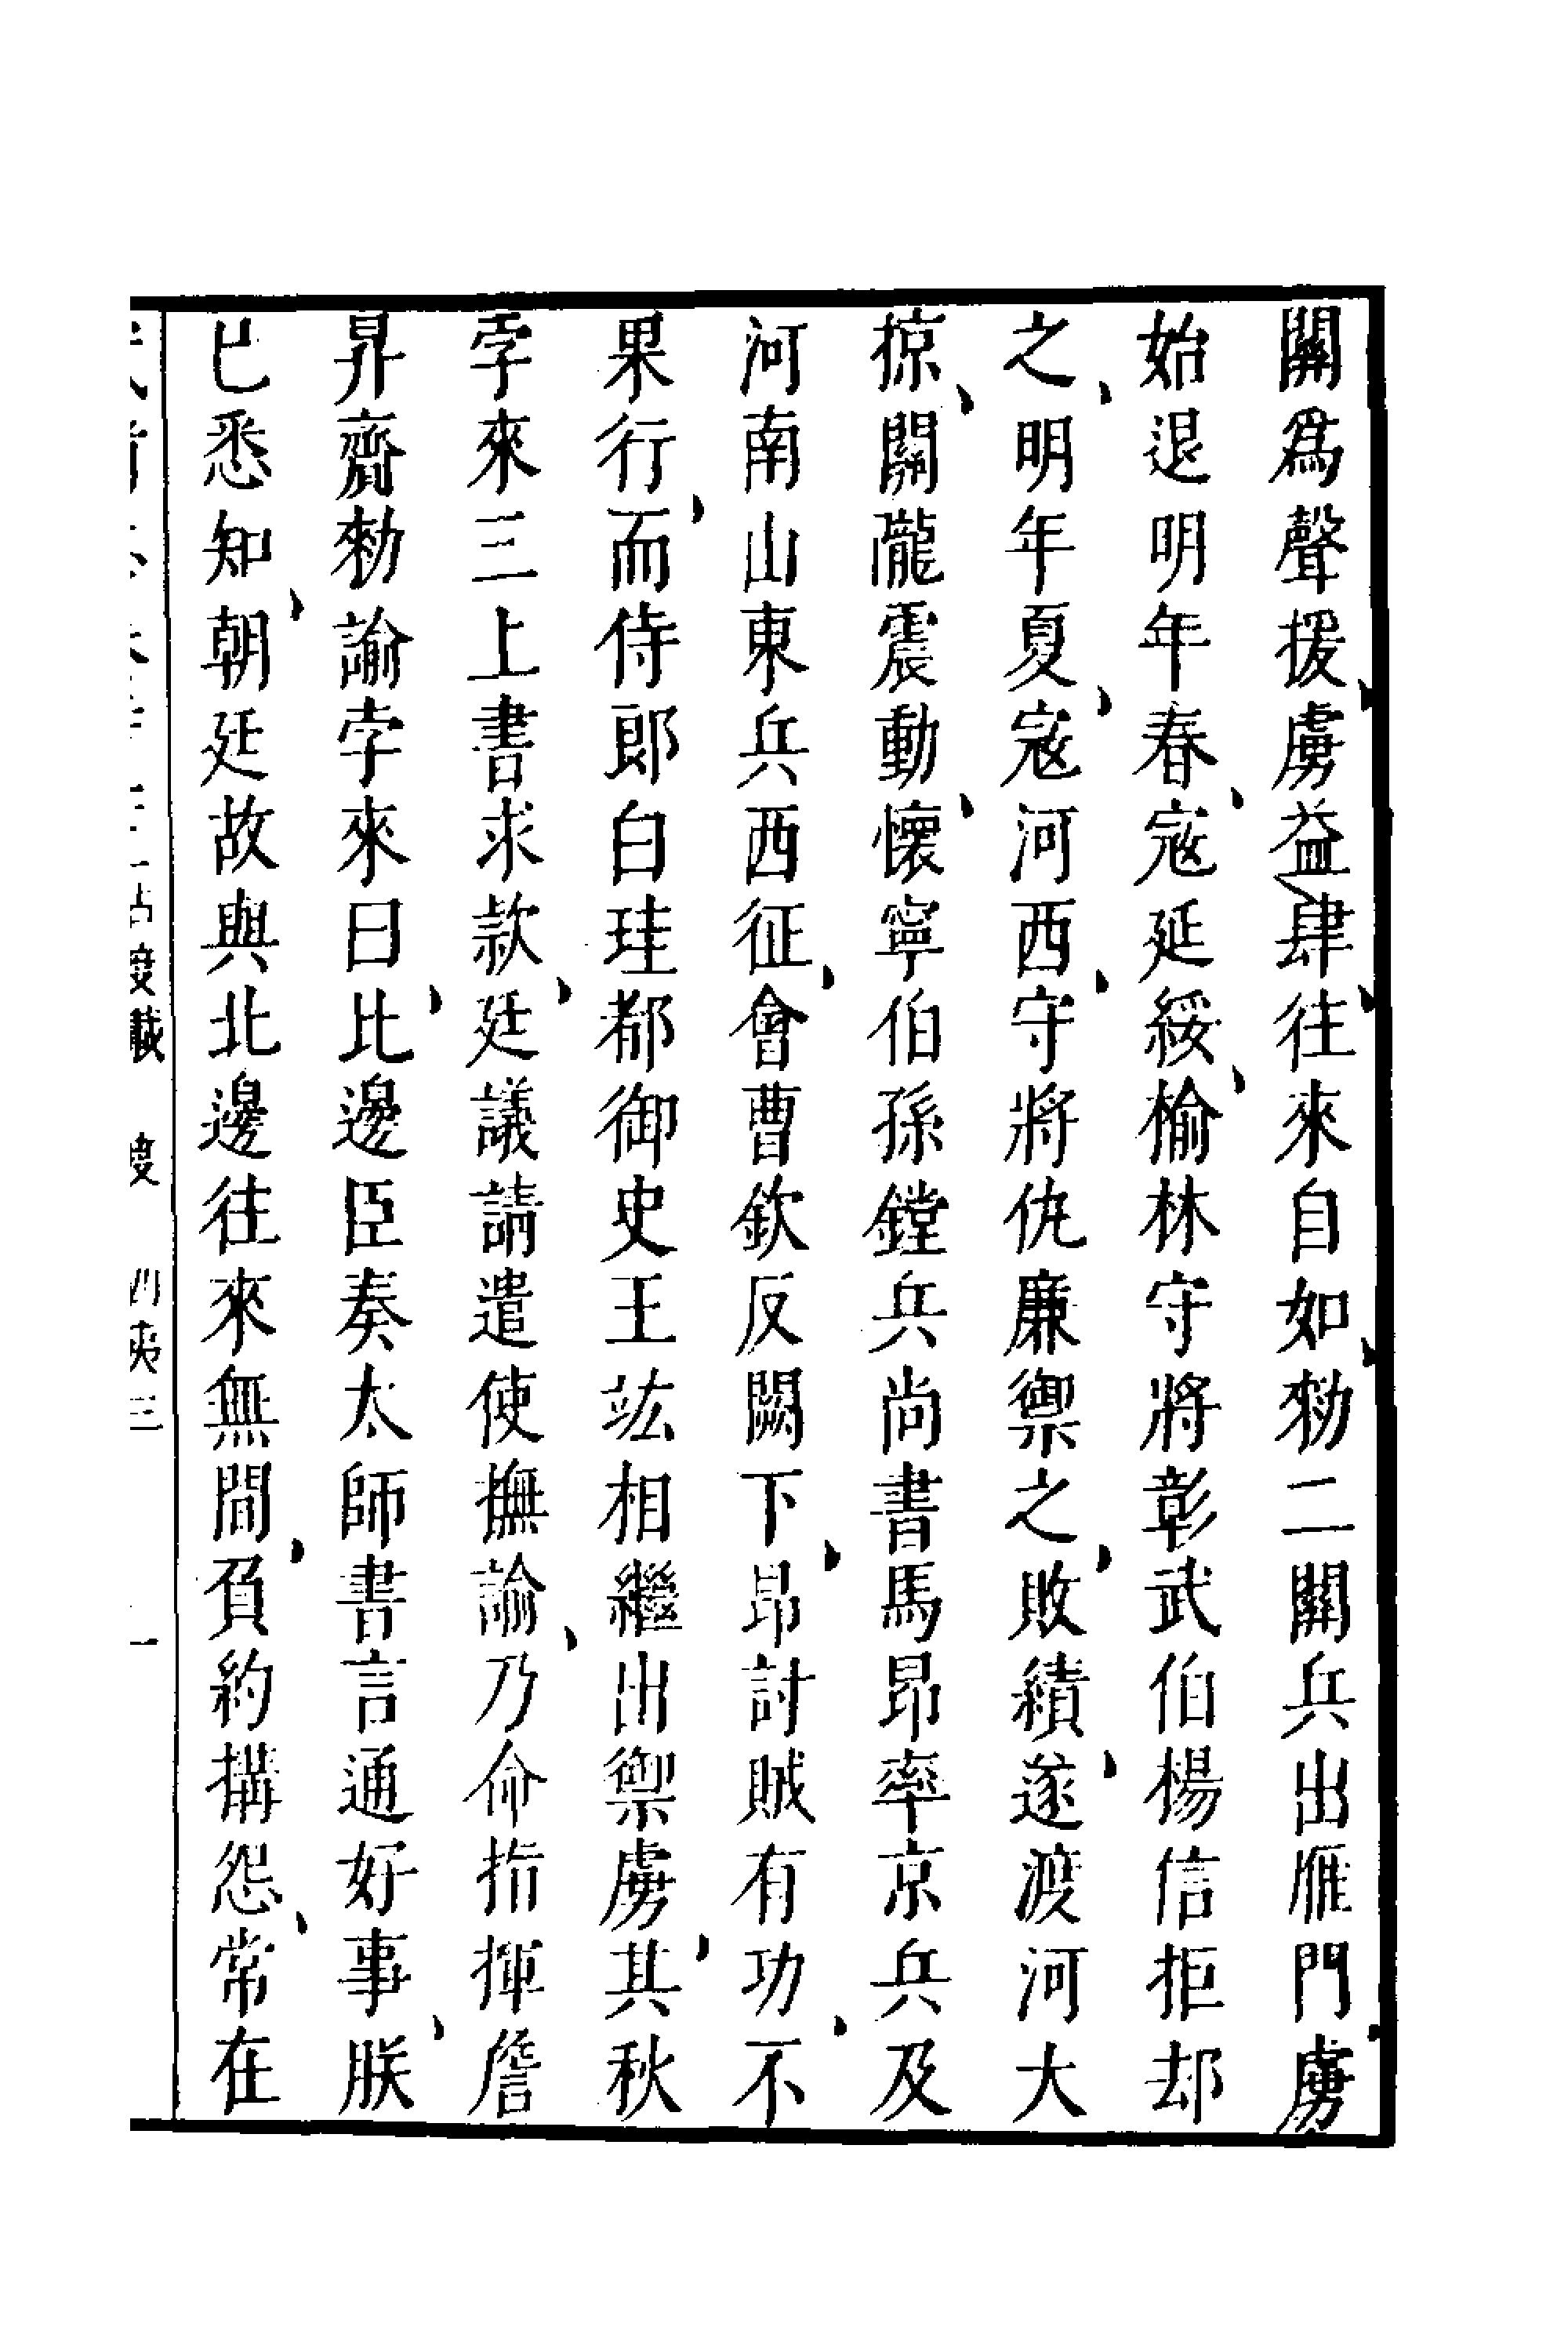 關為聲援虜益肆往來自如勑二關兵出雁門虜
始退明年春寇延綏榆林守將彰武伯楊信拒却
之明年夏寇河西守將仇廉禦之敗績遂渡河大
掠關隴震動懷寧伯孫鏜兵尚書馬昂率京兵及
河南山東兵西征會曹欽反闕下昂討賊有功不
果行而侍郎白珪都御史王竑相繼出禦虜其秋
孛來三上書求款廷議請遣使撫諭乃命指揮詹
昇齎勑諭孛來曰比邊臣奏太師書言通好事朕
已悉知朝廷故與北邊往來無間負約搆怨常在